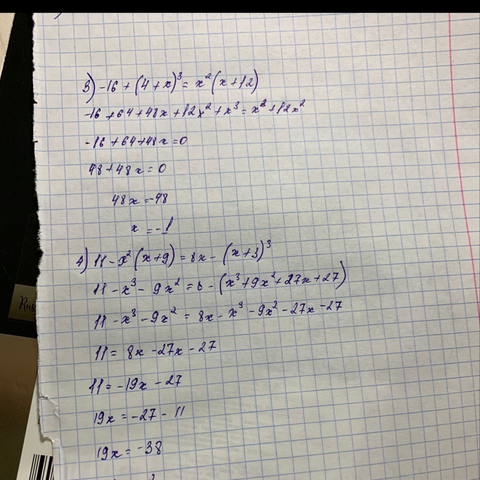 3) -16 + (4 + x)³ = x² (x + 12)
-16 + 64 + 48x + 12x² + x³ = x³ + 12x²
-16 + 64 + 48x = 0
48 + 48x = 0
48x = -48
x = -1
4) 11 - x² (x + 9) = 8x - (x + 3)³
11 - x³ - 9x² = 8 - (x³ + 9x² + 27x + 27)
11 - x³ - 9x² = 8x - x³ - 9x² - 27x - 27
11 = 8x - 27x - 27
11 = -19x - 27
19x = -27 - 11
19x = -38